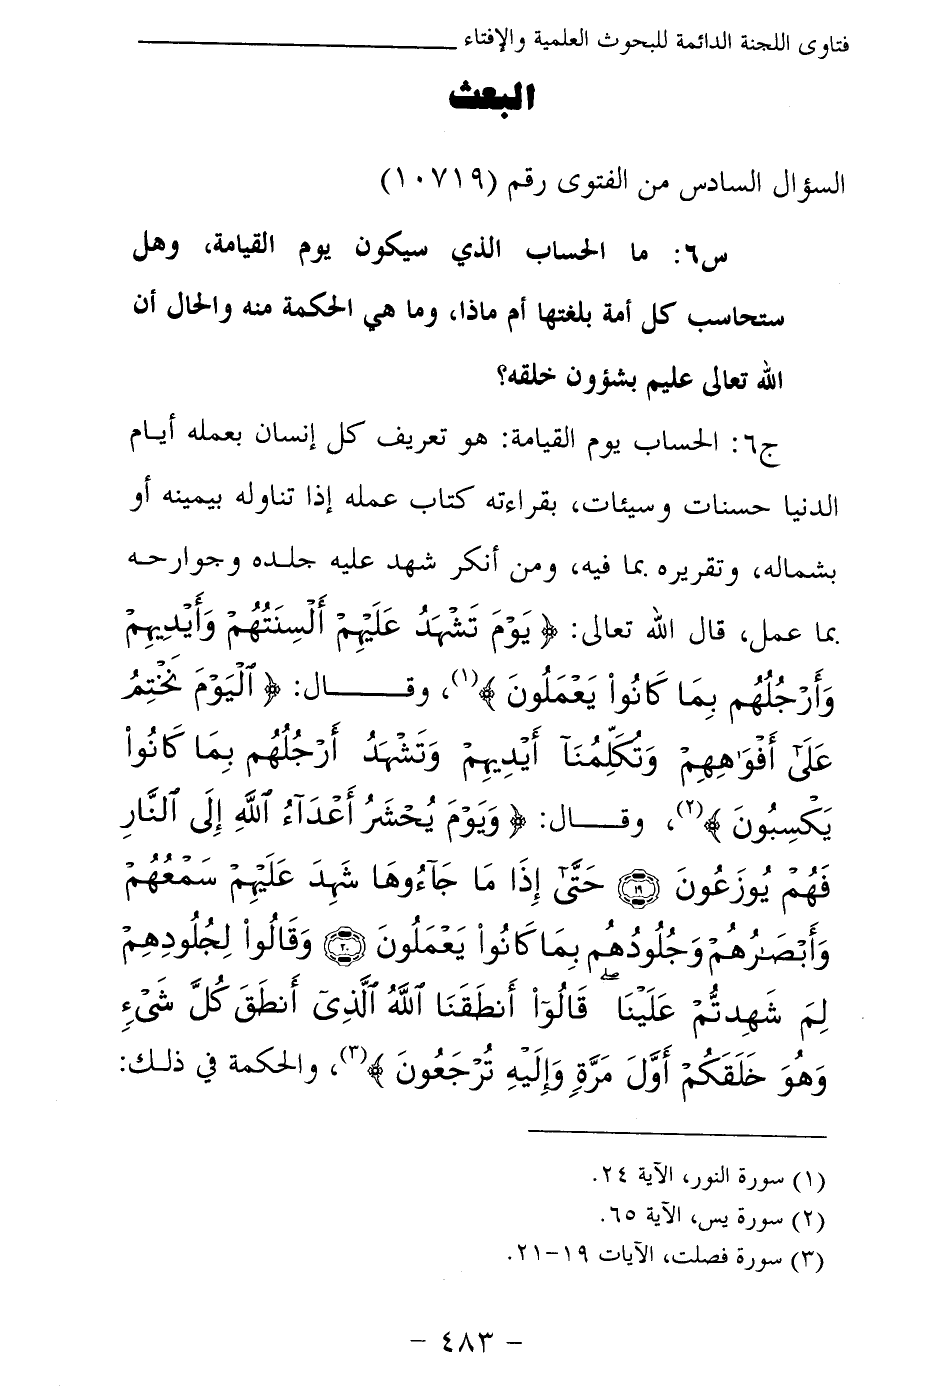 فتاوى اللجنة الدائمة للبحوث العلمية والإفتاء
البعث
السؤال السادس من الفتوى رقم (١٠٧١٩)
س٦: ما الحساب الذي سيكون يوم القيامة، وهل
ستحاسب كل أمة بلغتها أم ماذا، وما هي الحكمة منه والحال أن
الله تعالى عليم بشؤون خلقه؟
ج٦: الحساب يوم القيامة: هو تعريف كل إنسان بعمله أيام
الدنيا حسنات وسيئات، بقراءته كتاب عمله إذا تناوله بيمينه أو
بشماله، وتقريره بما فيه، ومن أنكر شهد عليه جلده وجوارحه
بما عمل، قال الله تعالى: ﴿ يَوْمَ تَشْهَدُ عَلَيْهِمْ أَلْسِنَتُهُمْ وَأَيْدِيهِمْ
وَأَرْجُلُهُم بِمَا كَانُوا۟ يَعْمَلُونَ ﴾(١)، وقال: ﴿ ٱلْيَوْمَ نَخْتِمُ
عَلَىٰٓ أَفْوَٰهِهِمْ وَتُكَلِّمُنَآ أَيْدِيهِمْ وَتَشْهَدُ أَرْجُلُهُم بِمَا كَانُوا۟
يَكْسِبُونَ ﴾(٢)، وقال: ﴿ وَيَوْمَ يُحْشَرُ أَعْدَآءُ ٱللَّهِ إِلَى ٱلنَّارِ
فَهُمْ يُوزَعُونَ ۝١٩ حَتَّىٰٓ إِذَا مَا جَآءُوهَا شَهِدَ عَلَيْهِمْ سَمْعُهُمْ
وَأَبْصَٰرُهُمْ وَجُلُودُهُم بِمَا كَانُوا۟ يَعْمَلُونَ ۝٢٠ وَقَالُوا۟ لِجُلُودِهِمْ
لِمَ شَهِدتُّمْ عَلَيْنَا ۖ قَالُوٓا۟ أَنطَقَنَا ٱللَّهُ ٱلَّذِىٓ أَنطَقَ كُلَّ شَىْءٍ
وَهُوَ خَلَقَكُمْ أَوَّلَ مَرَّةٍ وَإِلَيْهِ تُرْجَعُونَ ﴾(٣)، والحكمة في ذلك:
(١) سورة النور، الآية ٢٤.
(٢) سورة يس، الآية ٦٥.
(٣) سورة فصلت، الآيات ١٩-٢١.
- ٤٨٣ -